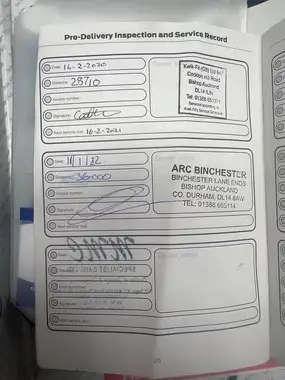 Pre-Delivery Inspection and Service Record
Date: 16-2-2020
Distance: 28710
Invoice number:
Signature:
Next service due: 16-2-2021
Kwik-Fit (GB) Ltd
Coddon Hill Road
Bishop Auckland
DL14
Tel: 01388
Date: 11/1/22
Distance: 36000
Invoice number:
Signature:
Next service due:
ARC BINCHESTER
BINCHESTER LANE ENDS
BISHOP AUCKLAND
CO. DURHAM, DL14 8AW
TEL: 01388 605114
Date:
Signature:
Next service due: